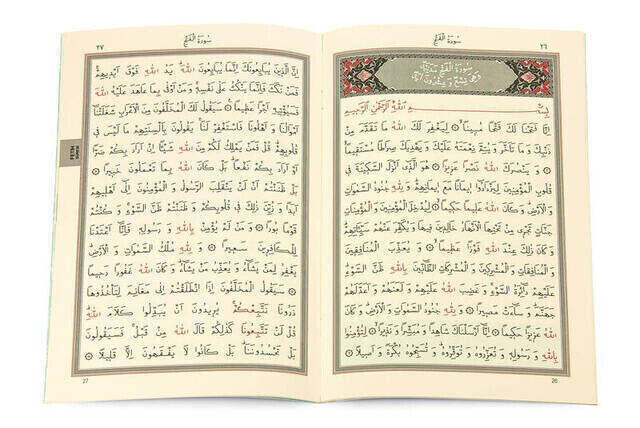 سُورَةُ الْفَتْحِ
٢٦
سُورَةُ الْفَتْحِ مَدَنِيَّةٌ
وَهِيَ تِسْعٌ وَعِشْرُونَ آيَةً
بِسْمِ اللّٰهِ الرَّحْمٰنِ الرَّحِيمِ
اِنَّا فَتَحْنَا لَكَ فَتْحًا مُبِينًا ۝ لِيَغْفِرَ لَكَ اللّٰهُ مَا تَقَدَّمَ مِنْ
ذَنْبِكَ وَ مَا تَاَخَّرَ وَ يُتِمَّ نِعْمَتَهُ عَلَيْكَ وَ يَهْدِيَكَ صِرَاطًا مُسْتَقِيمًا
۝ وَ يَنْصُرَكَ اللّٰهُ نَصْرًا عَزِيزًا ۝ هُوَ الَّذِى اَنْزَلَ السَّكِينَةَ فِى
قُلُوبِ الْمُؤْمِنِينَ لِيَزْدَادُوا اِيمَانًا مَعَ اِيمَانِهِمْ وَ لِلّٰهِ جُنُودُ السَّمٰوَاتِ
وَ الْاَرْضِ وَ كَانَ اللّٰهُ عَلِيمًا حَكِيمًا ۝ لِيُدْخِلَ الْمُؤْمِنِينَ وَ الْمُؤْمِنَاتِ
جَنَّاتٍ تَجْرِى مِنْ تَحْتِهَا الْاَنْهَارُ خَالِدِينَ فِيهَا وَ يُكَفِّرَ عَنْهُمْ سَيِّئَاتِهِمْ
وَ كَانَ ذٰلِكَ عِنْدَ اللّٰهِ فَوْزًا عَظِيمًا ۝ وَ يُعَذِّبَ الْمُنَافِقِينَ
وَ الْمُنَافِقَاتِ وَ الْمُشْرِكِينَ وَ الْمُشْرِكَاتِ الظَّانِّينَ بِاللّٰهِ ظَنَّ السَّوْءِ
عَلَيْهِمْ دَائِرَةُ السَّوْءِ وَ غَضِبَ اللّٰهُ عَلَيْهِمْ وَ لَعَنَهُمْ وَ اَعَدَّ لَهُمْ
جَهَنَّمَ وَ سَاءَتْ مَصِيرًا ۝ وَ لِلّٰهِ جُنُودُ السَّمٰوَاتِ وَ الْاَرْضِ وَ كَانَ
اللّٰهُ عَزِيزًا حَكِيمًا ۝ اِنَّا اَرْسَلْنَاكَ شَاهِدًا وَ مُبَشِّرًا وَ نَذِيرًا ۝ لِتُؤْمِنُوا
بِاللّٰهِ وَ رَسُولِهِ وَ تُعَزِّرُوهُ وَ تُوَقِّرُوهُ وَ تُسَبِّحُوهُ بُكْرَةً وَ اَصِيلًا ۝
26
سُورَةُ الْفَتْحِ
٢٧
اِنَّ الَّذِينَ يُبَايِعُونَكَ اِنَّمَا يُبَايِعُونَ اللّٰهَ يَدُ اللّٰهِ فَوْقَ اَيْدِيهِمْ
فَمَنْ نَكَثَ فَاِنَّمَا يَنْكُثُ عَلٰى نَفْسِهِ وَ مَنْ اَوْفٰى بِمَا عَاهَدَ عَلَيْهُ اللّٰهَ
فَسَيُؤْتِيهِ اَجْرًا عَظِيمًا ۝ سَيَقُولُ لَكَ الْمُخَلَّفُونَ مِنَ الْاَعْرَابِ شَغَلَتْنَا
اَمْوَالُنَا وَ اَهْلُونَا فَاسْتَغْفِرْ لَنَا يَقُولُونَ بِاَلْسِنَتِهِمْ مَا لَيْسَ فِى
قُلُوبِهِمْ قُلْ فَمَنْ يَمْلِكُ لَكُمْ مِنَ اللّٰهِ شَيْئًا اِنْ اَرَادَ بِكُمْ ضَرًّا
اَوْ اَرَادَ بِكُمْ نَفْعًا بَلْ كَانَ اللّٰهُ بِمَا تَعْمَلُونَ خَبِيرًا ۝
بَلْ ظَنَنْتُمْ اَنْ لَنْ يَنْقَلِبَ الرَّسُولُ وَ الْمُؤْمِنُونَ اِلٰى اَهْلِيهِمْ
اَبَدًا وَ زُيِّنَ ذٰلِكَ فِى قُلُوبِكُمْ وَ ظَنَنْتُمْ ظَنَّ السَّوْءِ وَ كُنْتُمْ
قَوْمًا بُورًا ۝ وَ مَنْ لَمْ يُؤْمِنْ بِاللّٰهِ وَ رَسُولِهِ فَاِنَّا اَعْتَدْنَا
لِلْكَافِرِينَ سَعِيرًا ۝ وَ لِلّٰهِ مُلْكُ السَّمٰوَاتِ وَ الْاَرْضِ
يَغْفِرُ لِمَنْ يَشَاءُ وَ يُعَذِّبُ مَنْ يَشَاءُ وَ كَانَ اللّٰهُ غَفُورًا رَحِيمًا
۝ سَيَقُولُ الْمُخَلَّفُونَ اِذَا انْطَلَقْتُمْ اِلٰى مَغَانِمَ لِتَاْخُذُوهَا
ذَرُونَا نَتَّبِعْكُمْ يُرِيدُونَ اَنْ يُبَدِّلُوا كَلَامَ اللّٰهِ
قُلْ لَنْ تَتَّبِعُونَا كَذٰلِكُمْ قَالَ اللّٰهُ مِنْ قَبْلُ فَسَيَقُولُونَ
بَلْ تَحْسُدُونَنَا بَلْ كَانُوا لَا يَفْقَهُونَ اِلَّا قَلِيلًا ۝
27
FETİH